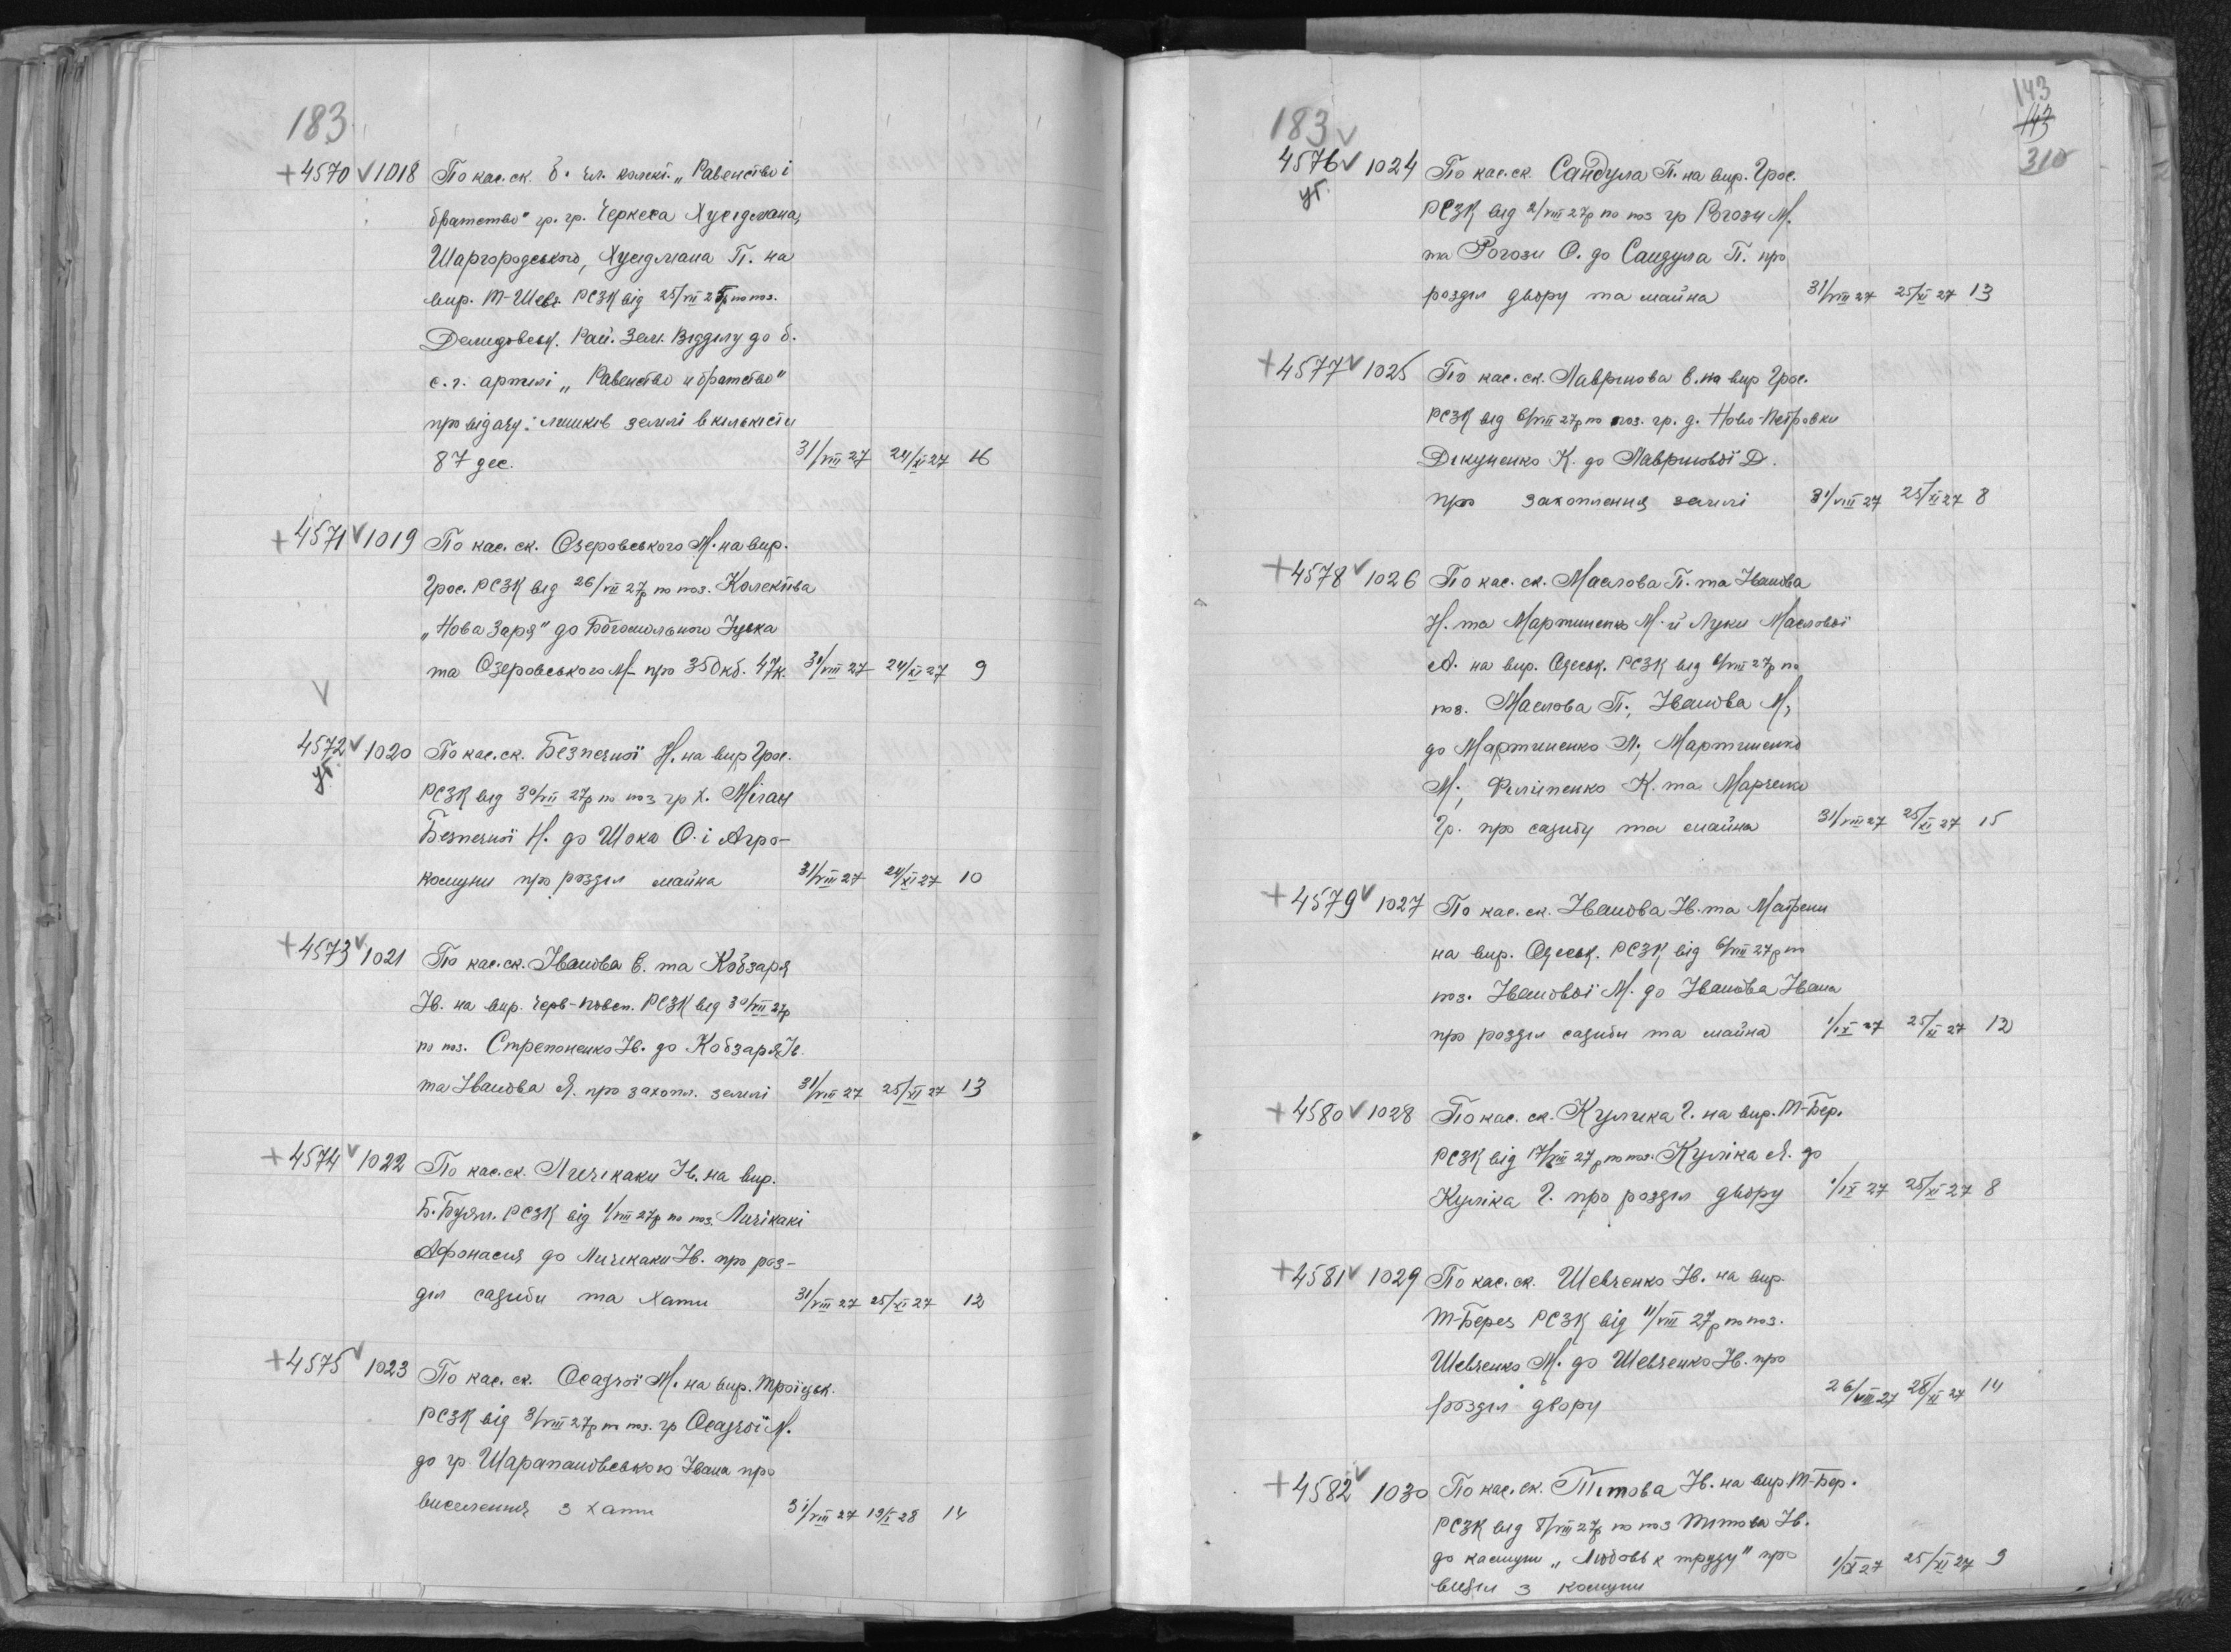 183
+4570 ✓ 1018 По кас. ск. б. чл. колект. „Равенство і
братство" гр. гр. Черкеса Хусідмана,
Шаргородського, Хусідмана П. на
вир. Т-Шевч РСЗК від 25/VII 27р по поз.
Демидовськ. Рай. Зем. Відділу до б.
с.г. артілі „Равенство и братство"
про відачу лишків землі в кількісти
87 дес. 31/VIII 27 24/XI 27 16
+4571 ✓ 1019 По кас. ск. Озеровського М. на вир.
Грос. РСЗК від 26/VII 27р по поз. Колектива
„Нова Заря" до Богомольного Зуська
та Озеровського М. про 350 кб. 47к. 31/VIII 27 24/XI 27 9
4572 ✓ 1020 По кас. ск. Безпечної Н. на вир Грос.
РСЗК від 30/VII 27р по поз гр х. Мігаы
Безпечної Н. до Шока О. і Агро-
комуни про розділ майна 31/VIII 27 24/XI 27 10
+4573 ✓ 1021 По кас. ск. Іванова Є. та Кобзаря
Ів. на вир. Черв-Повст. РСЗК від 30/VII 27р
по поз. Стрепоненко Ів. до Кобзаря Ів.
та Іванова Я. про захопл. землі 31/VIII 27 25/XI 27 13
+4574 ✓ 1022 По кас. ск. Личікаки Ів. на вир.
Б. Буял. РСЗК від 1/VIII 27р по поз. Личікакі
Афонасия до Личікаки Ів. про роз-
діл садиби та хати 31/VIII 27 25/XI 27 12
+4575 ✓ 1023 По кас. ск. Осадчої М. на вир. Троїцьк.
РСЗК від 3/VIII 27р по поз. гр Осадчої М.
до гр Шарапановського Івана про
виселення з хати 31/VIII 27 13/I 28 14
183
143
310
4576 ✓ 1024 По кас. ск. Сандула П. на вир. Грос.
РСЗК від 2/VIII 27р по поз гр Рогози М.
та Рогози О. до Сандула П. про
розділ двору та майна 31/VIII 27 25/XI 27 13
+4577 ✓ 1025 По кас. ск. Лаврінова Є. на вир Грос.
РСЗК від 6/VIII 27р по поз. гр. д. Ново-Петровки
Дікуненко К. до Лаврінової Д.
про захоплення землі 31/VIII 27 25/XI 27 8
+4578 ✓ 1026 По кас. ск. Маслова П. та Іванова
Н. та Мартиненко М. й Луки Маслової
А. на вир. Одеськ. РСЗК від 6/VIII 27р по
поз. Маслова П., Іванова М,
до Мартиненко Л, Мартиненко
М., Филипенко К. та Марченко
Гр. про садибу та майна 31/VIII 27 25/XI 27 15
+4579 ✓ 1027 По кас. ск. Іванова Ів. та Матрени
на вир. Одеськ. РСЗК від 6/VIII 27р по
поз. Іванової М. до Іванова Івана
про розділ садиби та майна 1/IX 27 25/XI 27 12
+4580 ✓ 1028 По кас. ск. Куліка Г. на вир. Т-Бер.
РСЗК від 17/VIII 27р по поз. Куліка Я. до
Куліка Г. про розділ двору 1/IX 27 25/XI 27 8
+4581 ✓ 1029 По кас. ск. Шевченко Ів. на вир.
Т-Берез РСЗК від 11/VIII 27р по поз.
Шевченко М. до Шевченко Ів. про
розділ двору 26/VIII 27 28/XI 27 14
+4582 ✓ 1030 По кас. ск. Тітова Ів. на вир Т-Бер.
РСЗК від 8/VIII 27р по поз Тітова Ів.
до комуни „Любовь к труду" про
виділ з комуни 1/IX 27 25/XI 27 9